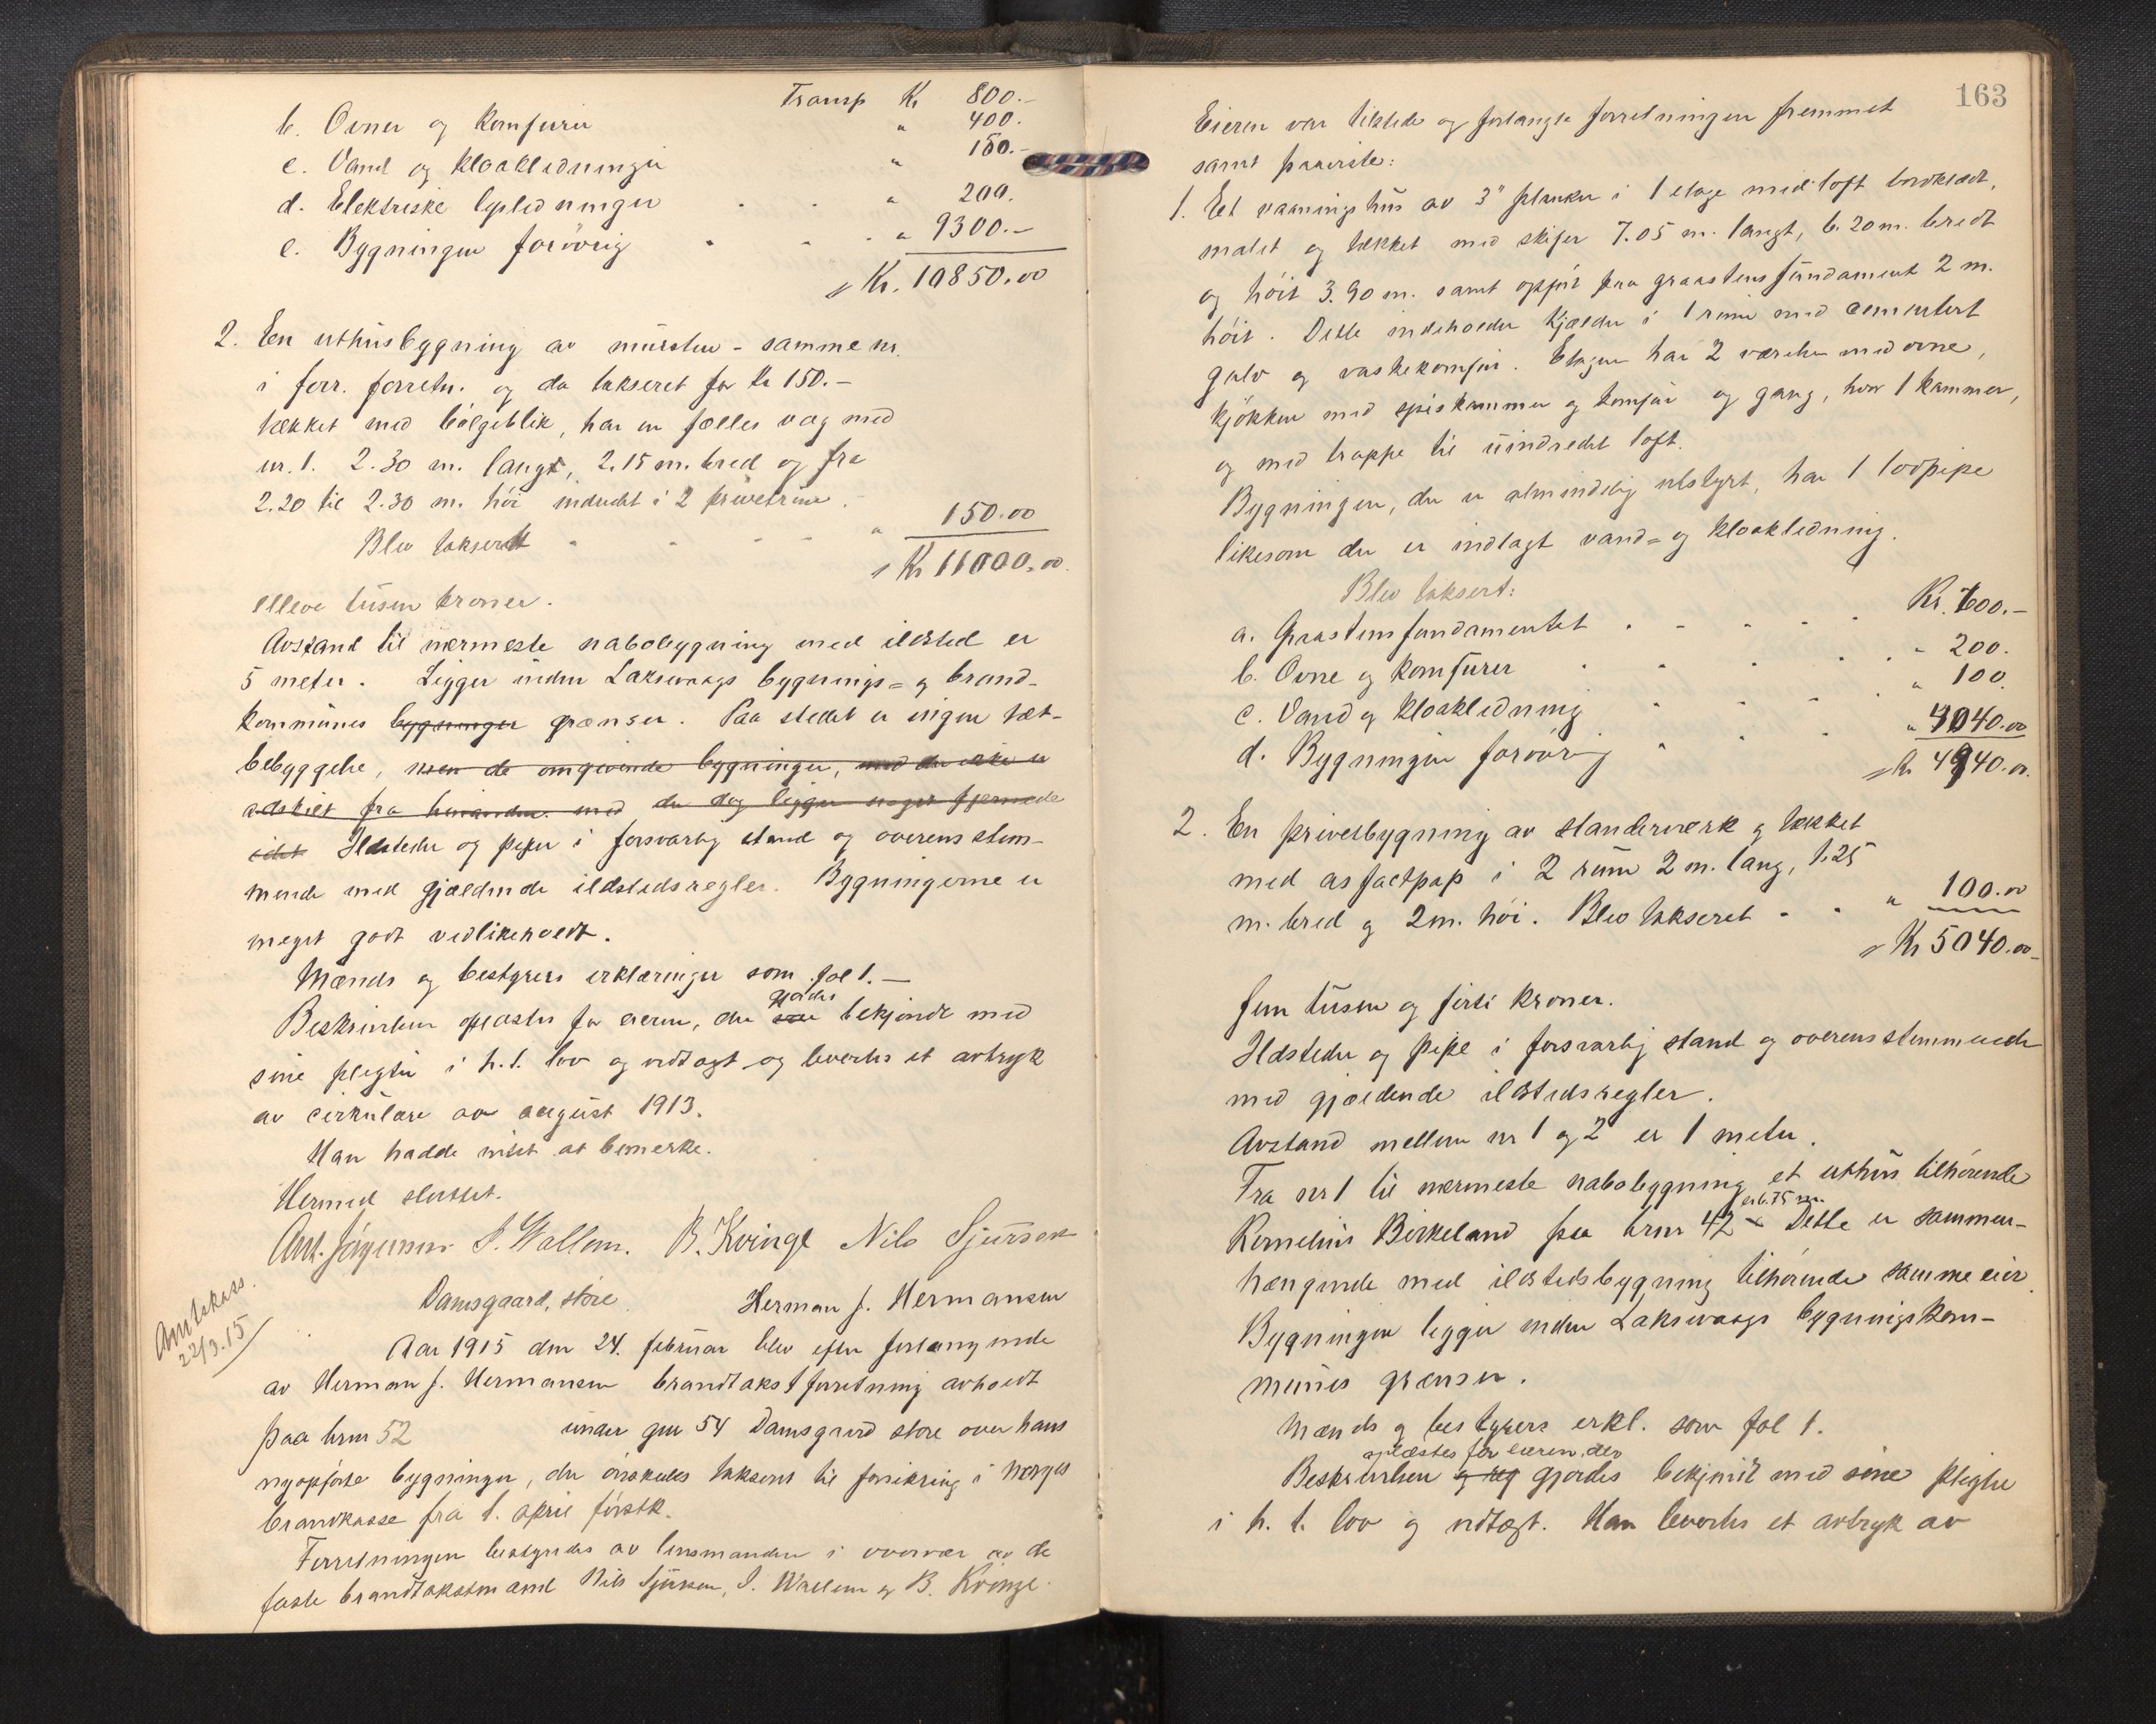 Transp Kr 800.-
b. Ovner og Komfurer " 400.
c. Vand og kloakledninger " 150.-
d. Elektriske lysledninger " 200.
e. Bygningen forövrig " 9300.-
Kr. 10850.00
2. En uthusbygning av mursten - samme nr.
i forr. forretn. og da takseret for kr 150.-
tækket med bölgeblik, har en fælles væg med
nr. 1. 2.30 m. langt, 2.15 m. bred og fra
2.20 til 2.30 m. höi indredet i 2 privetrum.
Blev takseret " 150.00
Kr 11000.00.
elleve tusen kroner.
Avstand til nærmeste nabobygning med ildsted er
5 meter. Ligger inden Laksevaags bygnings- og brand-
kommunes bygninger grænser. Paa stedet er ingen tæt-
bebyggelse, men de omgivende bygninger, med der ikke er
adskilt fra hinanden med der dog ligger noget fjernede
Ildsteder og piper i forsvarlig stand og overensstem-
mende med gjældende ildstedsregler. Bygningerne er
meget godt vedlikeholdt.
Mænds og bestyrers erklæringer som fol 1.-
gjordes
Beskrivelsen oplæstes for eieren, der bekjendt med
sine pligter i h.t. lov og vedtægt og leverdes et avtryk
av cirkulære av august 1913.
Han hadde intet at bemerke.
Hermed sluttet.
Ant. Jörgensen J. Wallem. B. Kvinge Nils Sjursen
Amtskass.
22/3.15
Damsgaard, store. Herman J. Hermansen
Aar 1915 den 24. februar blev efter forlangende
av Herman J. Hermansen brandtakstforretning avholdt
paa brnr 52 under gnr 54 Damsgaard store over hans
nyopförte bygninger, der önskedes takseret til forsikring i Norges
brandkasse fra 1. april förstk.
Forretningen bestyredes av lensmanden i overvær av de
faste brandtakstmænd Nils Sjursen, J. Wallem og B. Kvinge.
163
Eieren var tilstede og forlangte forretningen fremmet
samt paaviste:
1. Et vaaningshus av 3" planker i 1 etage med loft bordklædt,
malet og tækket med skifer 7.05 m. langt, 6.20 m. bredt
og höit 3.90 m. samt opfört paa graastensfundament 2 m.
höit. Dette indeholder kjælder i 1 rum med cementert
gulv og vaskekomfur. Etagen har 2 værelser med ovne,
kjökken med spiskammer og komfur og gang, hvor 1 kammer,
og med trappe til uindredet loft.
Bygningen, der er almindelig utstyrt, har 1 lodpipe
likesom der er indlagt vand- og kloakledning.
Blev taksert:
a. Graastensfundamentet Kr. 600.-
b. Ovne og komfurer " 200.
c. Vand og kloakledning " 100.
d. Bygningen forövrig " 4040.00
Kr 4940.00.
2. En privetbygning av standerværk og tækket
med asfaltpap i 2 rum 2 m. lang, 1.25
m. bred og 2 m. höi. Blev takseret " 100.00
Kr 5040.00
fem tusen og firti kroner.
Ildsteder og pipe i forsvarlig stand og overensstemmende
med gjældende ildstedsregler.
Avstand mellem nr 1 og 2 er 1 meter.
Fra nr 1 til nærmeste nabobygning et uthus tilhörende
er 6.75 m.
Kornelius Birkeland paa brnr 42 x Dette er sammen-
hængende med ildstedsbygning tilhörende samme eier.
Bygningen ligger inden Laksevaags bygningskom-
munes grænser.
Mænds og bestyrers erkl. som fol 1.
oplæstes for eieren, der
Beskrivelsen gjordes bekjendt med sine pligter
i h. t. lov og vedtægt. Han leverdes et avtryk av